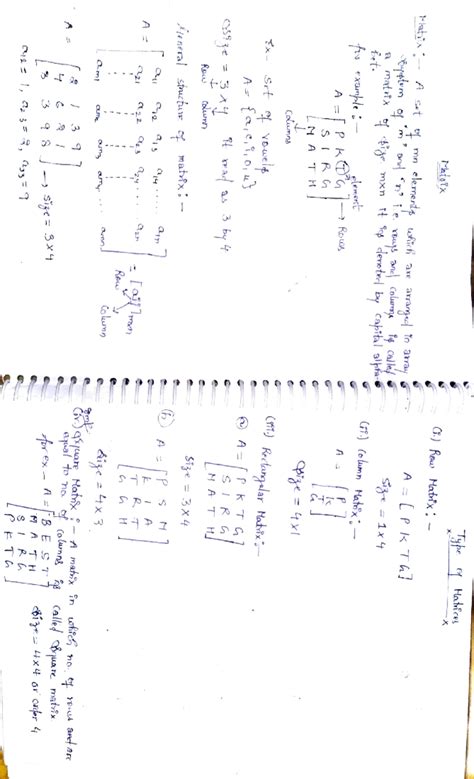 Matrix
Matrix :- A set of mn elements which are arranged in array
system of 'm' and 'n' i.e. rows and columns is called
a matrix of size mxn it is denoted by capital
for example :-
A = [ P K T G
S I R G
M A T H ]
element
→ Rows
columns
Ex - set of vowels
A = {a, e, i, o, u}
Size = 3 x 4 It read as 3 by 4
Row column
General structure of matrix :-
A = [ a11 a12 a13 a14 ..... a1n
a21 a22 a23 a24 ..... a2n
am1 am2 am3 am4 ..... amn ] = [aij]mxn
Row column
A = [ 2 1 3 9
4 6 2 1
3 3 9 8 ] → size = 3 x 4
a12 = 1, a23 = 2, a33 = 9
Type of Matrices
(i) Row Matrix :-
A = [ P K T G ]
Size = 1 x 4
(ii) Column Matrix :-
A = [ P
K
T
G ]
Size = 4 x 1
(iii) Rectangular Matrix :-
(a) A = [ P K T G
S I R G
M A T H ]
Size = 3 x 4
(b) A = [ P S M
K I A
T R T
G G H ]
Size = 4 x 3
(iv) Square Matrix :- A matrix in which no. of rows and are
equal to no. of columns is called Square matrix
for ex - A = [ B E S T
M A T H
S I R G
P K T G ] Size = 4x4 or order 4